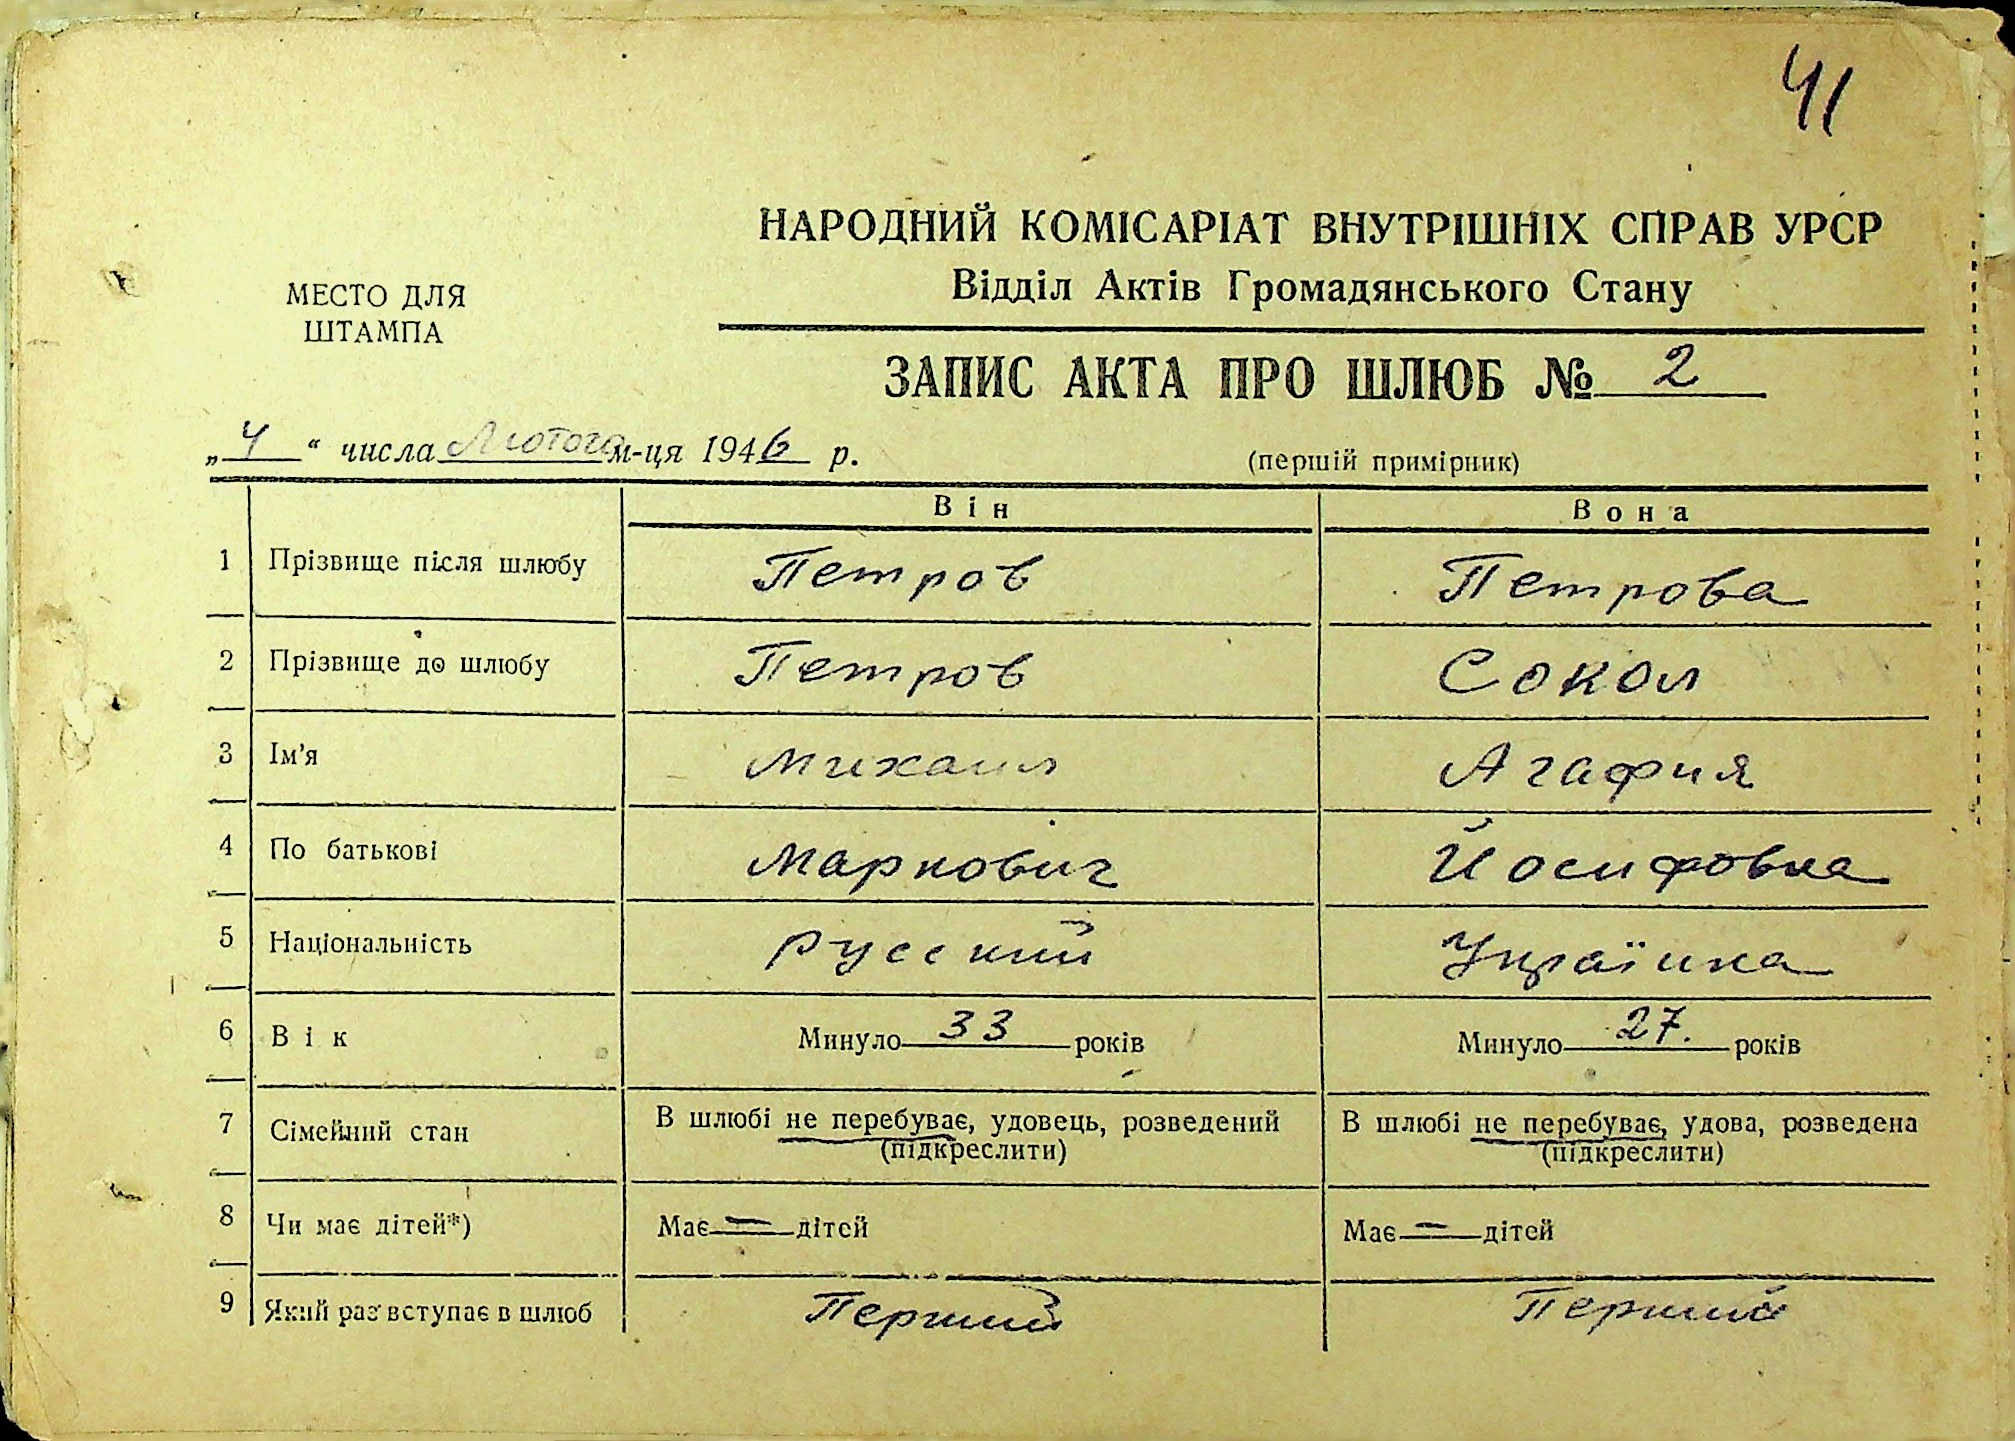 41
НАРОДНИЙ КОМІСАРІАТ ВНУТРІШНІХ СПРАВ УРСР
Відділ Актів Громадянського Стану
МЕСТО ДЛЯ
ШТАМПА
ЗАПИС АКТА ПРО ШЛЮБ № 2
„4“ числа Лютого м-ця 1946 р.
(першій примірник)
Він Вона
1 Прізвище після шлюбу Петров Петрова
2 Прізвище до шлюбу Петров Сокол
3 Ім'я Михаил Агафия
4 По батькові Маркович Йосифовна
5 Національність Русский Українка
6 Вік Минуло 33 років Минуло 27. років
7 Сімейний стан В шлюбі не перебуває, удовець, розведений В шлюбі не перебуває, удова, розведена
(підкреслити) (підкреслити)
8 Чи має дітей*) Має — дітей Має — дітей
9 Який раз вступає в шлюб Перший Перший